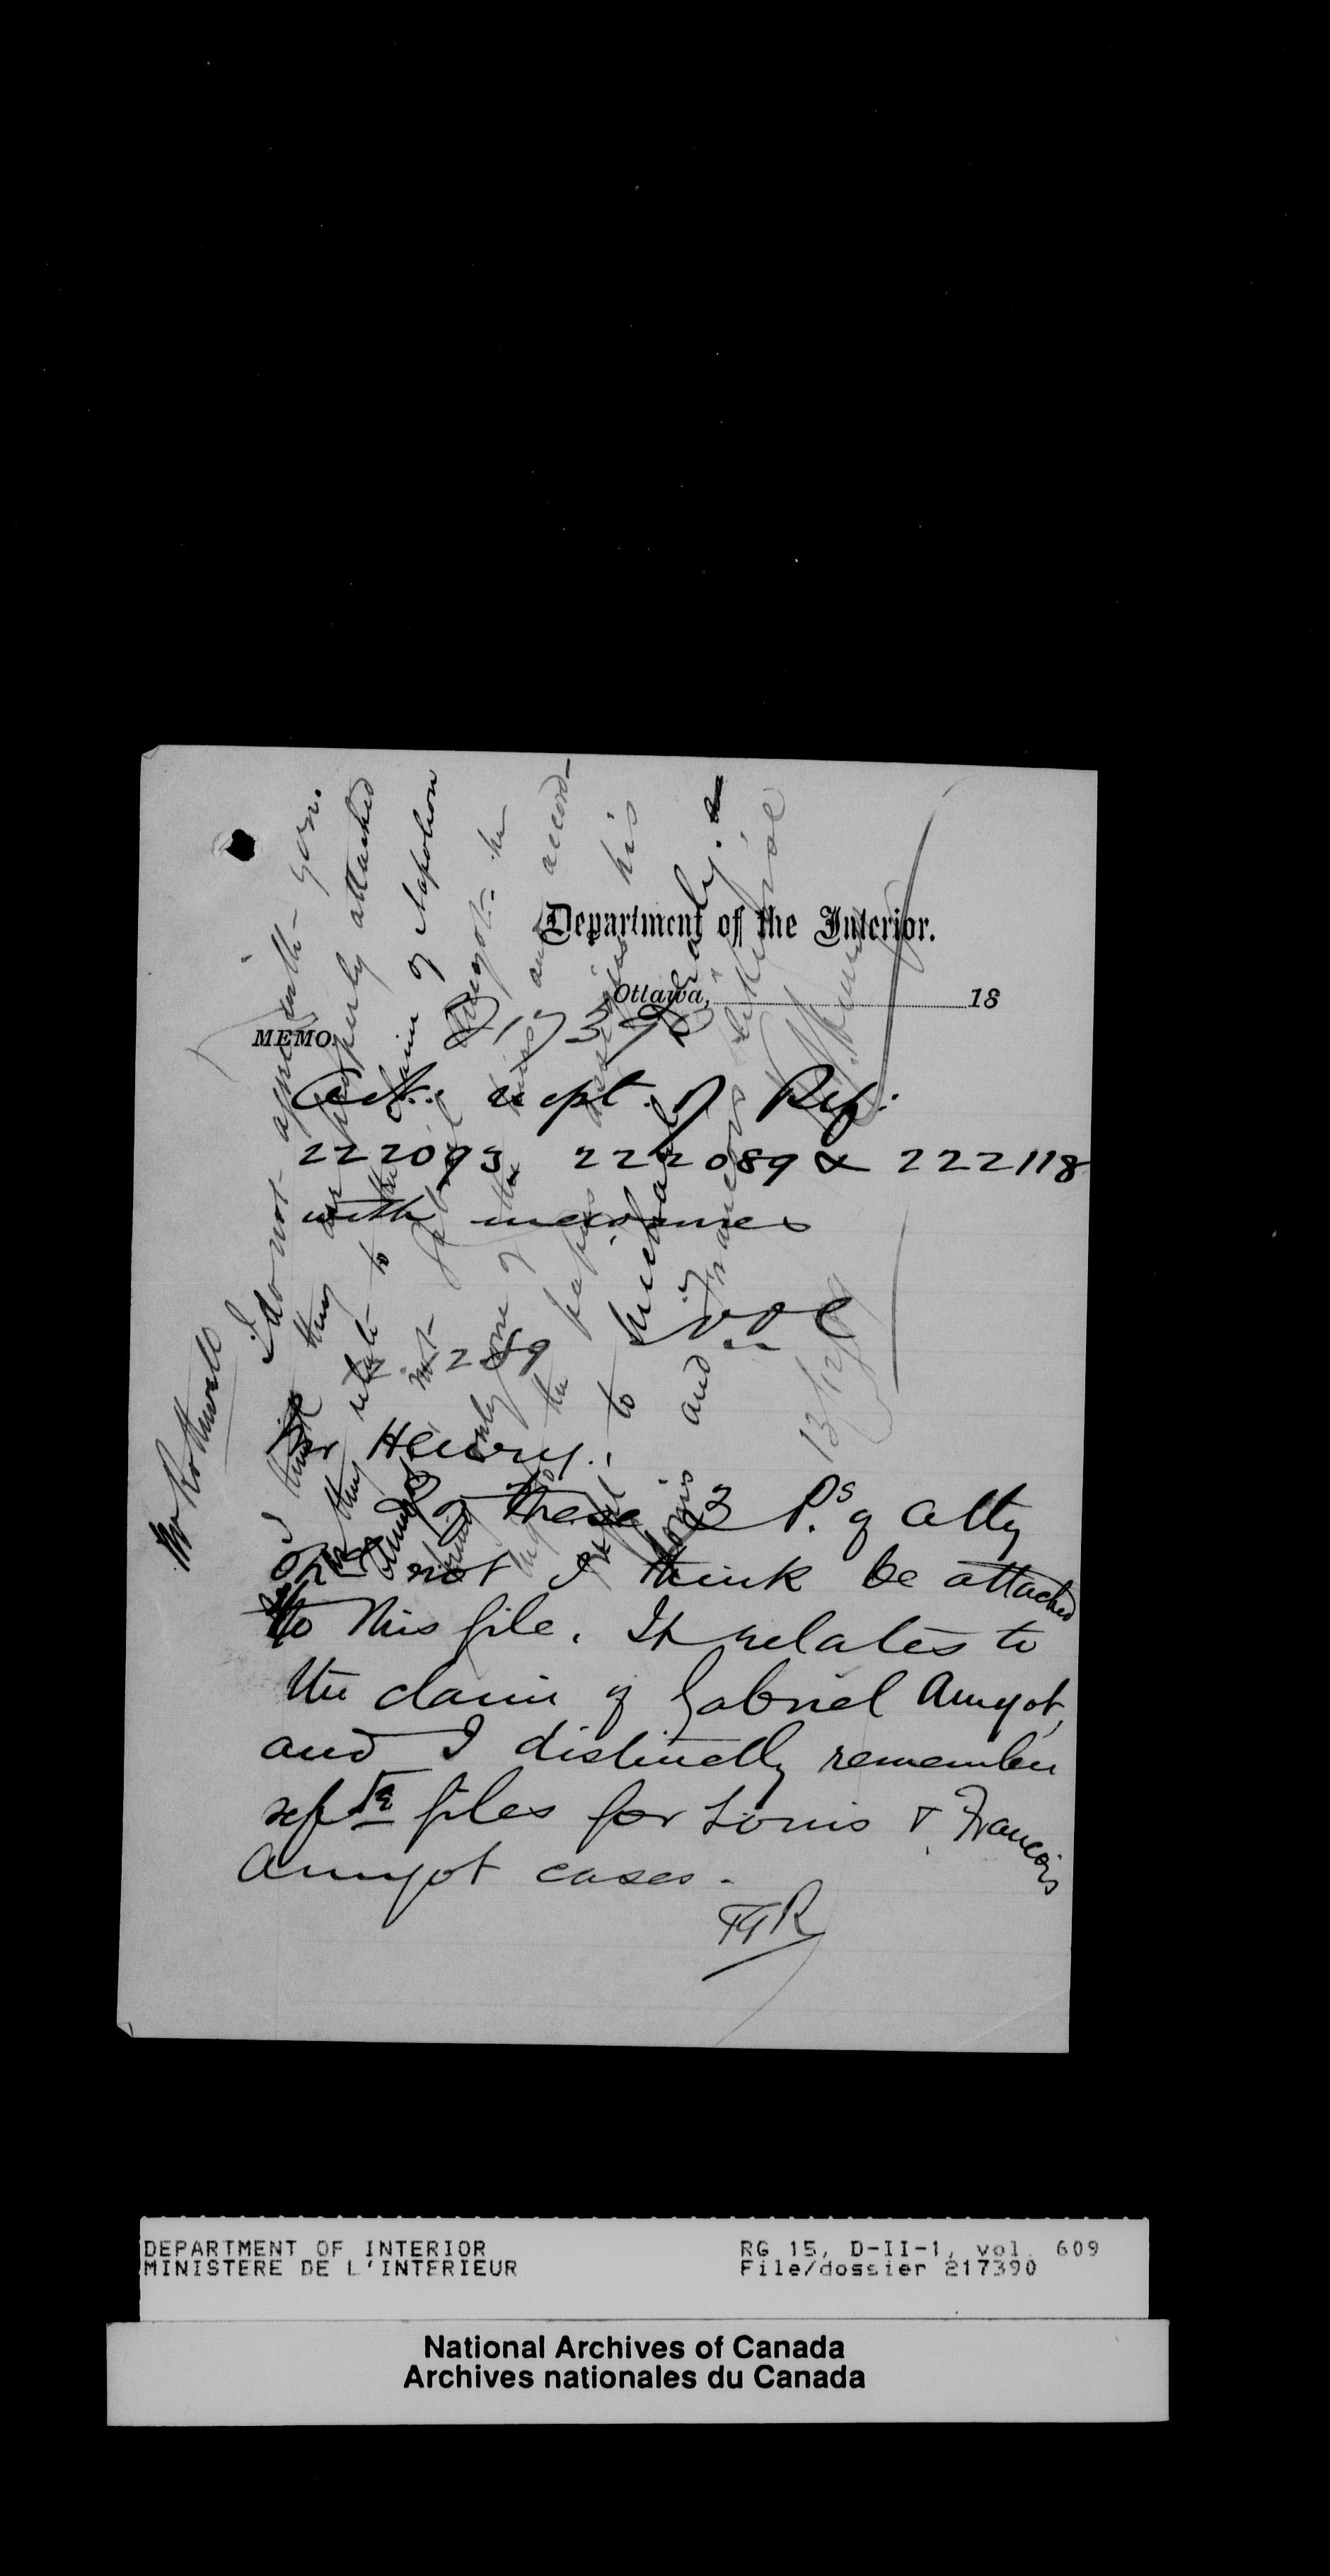 Department of the Interior.
Ottawa, 18
MEMO.
217390
Ack. rcpt. of Ref:
222093 222089 & 222118
with inclosures
289
Mr Henry.
These 3 P.s of Atty
not I think be attached
to this file. It relates to
the claim of Gabriel Amyot,
and I distinctly remember
septe files for Louis & Francois
Amyot cases.
TGR
Mr Rothwell
I do not agree with you.
I think they are properly attached
they relate to the claim of Napoleon
Amyot not Gabriel Amyot. he
only one of the heirs and accord-
ing to the papers his
right to Michael
Louis and Francois
13/12/89
DEPARTMENT OF INTERIOR RG 15, D-II-1, vol. 609
MINISTERE DE L'INTERIEUR File/dossier 217390
National Archives of Canada
Archives nationales du Canada